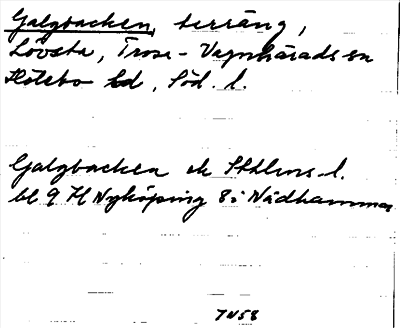 Galgbacken, terräng,
Lövsta, Trosa-Vagnhärads sn
Hölebo hd, Söd. l.
Galgbacken ek Sthlms l.
bl 9 H Nyköping 8 i Nådhammar
TV58